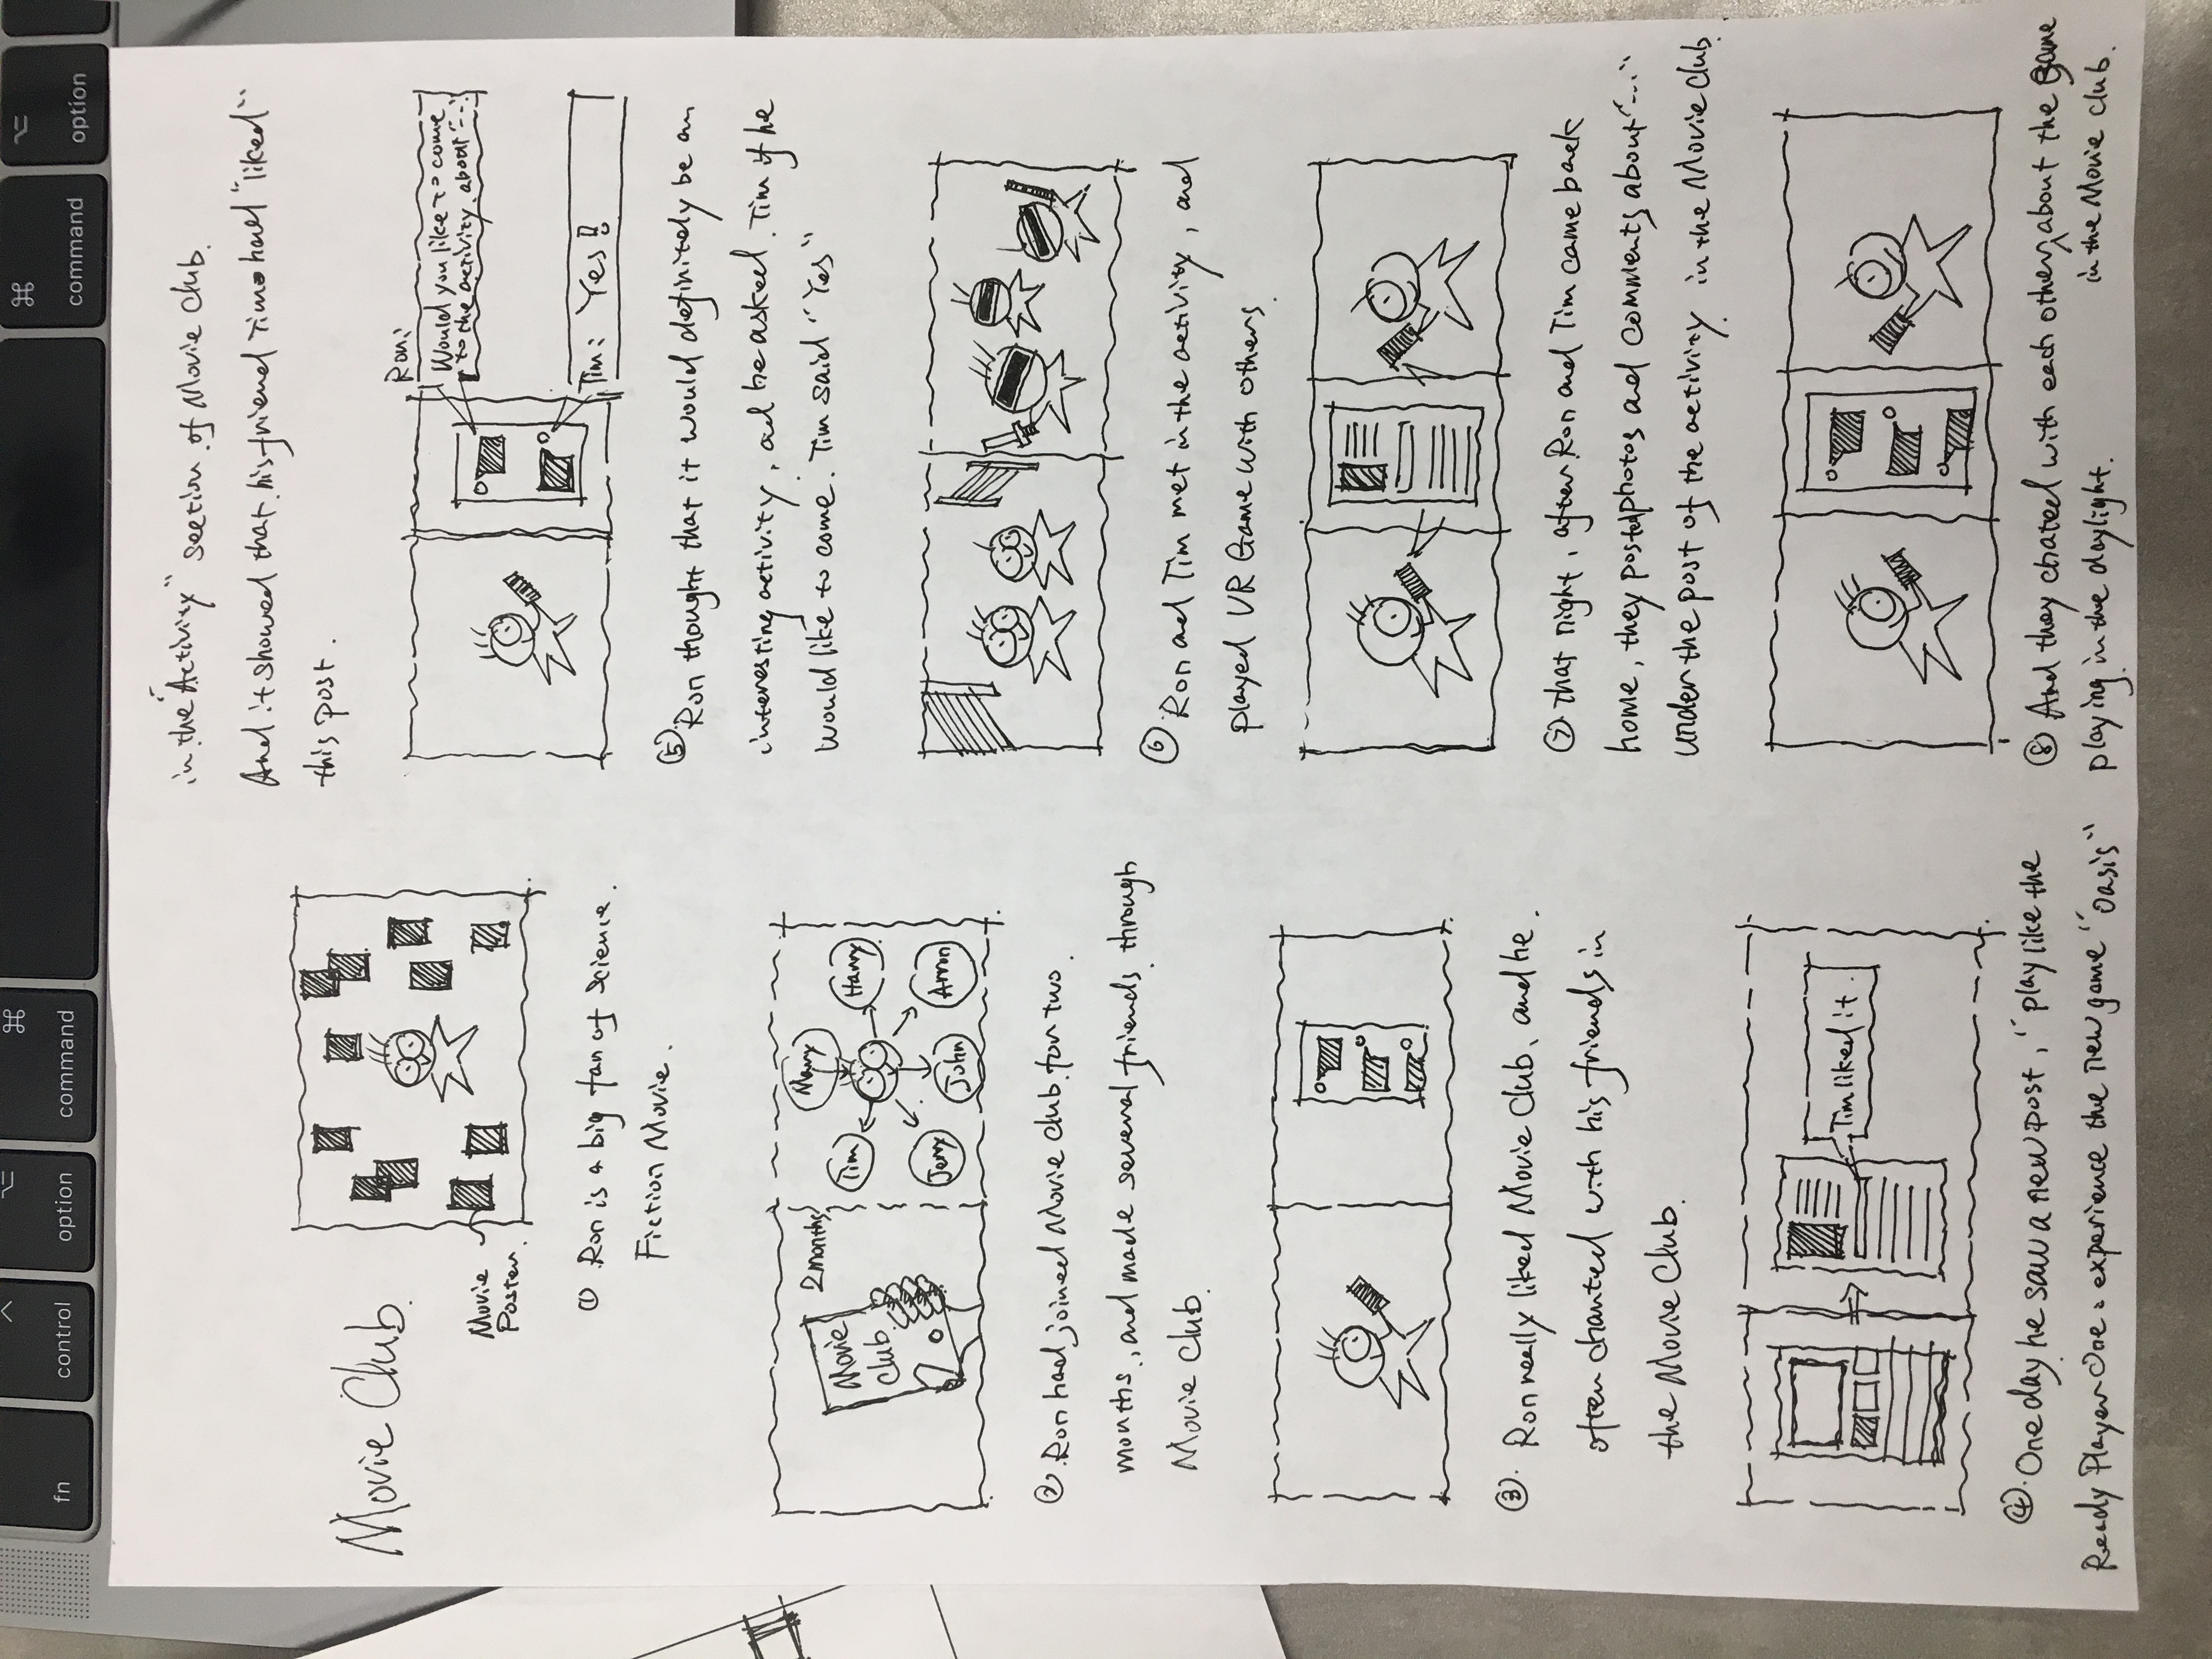 fn
control
option
command
command
option
Movie Club.
Movie
Poster.
① Ron is a big fan of Science
Fiction Movie.
2 months
Movie
Club
Mary
Tim
Harry
Jerry
John
Arron
② Ron had joined Movie Club for two
months, and made several friends through
Movie Club.
③. Ron really liked Movie Club, and he
often chanted with his friends in
the Movie Club.
Tim liked it.
④. One day he saw a new post, "play like the
Ready Player One: experience the new game "Oasis"
in the "Activity" section of Movie Club.
And it showed that his friend Tim had "liked"
this post.
Ron:
Would you like to come
to the activity about "---"
Tim: Yes!!
⑤. Ron thought that it would definitely be an
interesting activity, and he asked Tim if he
would like to come. Tim said "Yes"
⑥ Ron and Tim met in the activity, and
played VR Game with others.
⑦ That night, after Ron and Tim came back
home, they posted photos and comments about "---"
under the post of the activity in the Movie Club.
⑧ And they chated with each other, about the game
in the Movie club.
playing in the daylight.